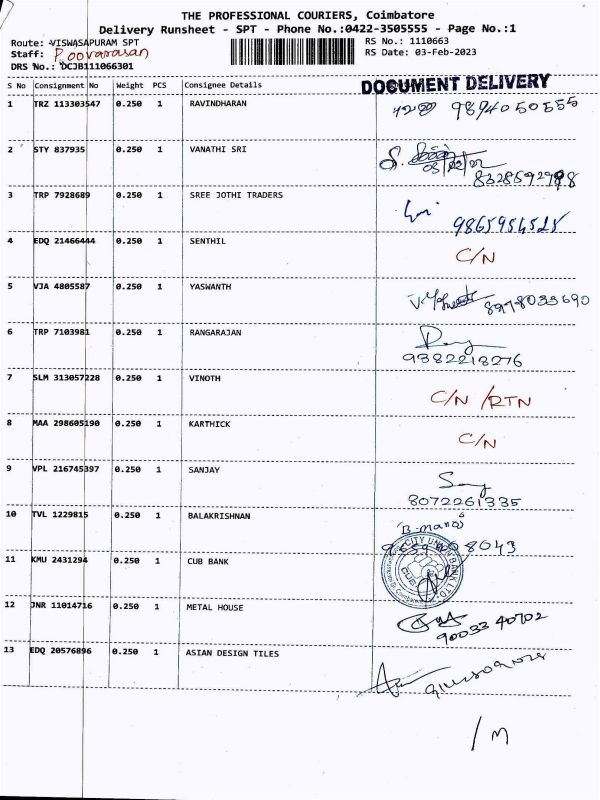 THE PROFESSIONAL COURIERS, Coimbatore
Delivery Runsheet - SPT - Phone No.:0422-3505555 - Page No.:1
Route: VISWASAPURAM SPT
RS No.: 1110663
Staff: Poovarasan
RS Date: 03-Feb-2023
DRS No.: DCJB111066301
DOCUMENT DELIVERY
S No Consignment No Weight PCS Consignee Details
1 TRZ 113303547 0.250 1 RAVINDHARAN 9894050555
2 STY 837935 0.250 1 VANATHI SRI
8328592998
3 TRP 7928689 0.250 1 SREE JOTHI TRADERS
9865954525
4 EDQ 21466444 0.250 1 SENTHIL
C/N
5 VJA 4805587 0.250 1 YASWANTH
8978033690
6 TRP 7103981 0.250 1 RANGARAJAN
9382218276
7 SLM 313057228 0.250 1 VINOTH
C/N /RTN
8 MAA 298605190 0.250 1 KARTHICK
C/N
9 VPL 216745397 0.250 1 SANJAY
8072261335
10 TVL 1229815 0.250 1 BALAKRISHNAN
8043
11 KMU 2431294 0.250 1 CUB BANK
CITY UNION BANK LTD.
CUB
12 JNR 11014716 0.250 1 METAL HOUSE
90033 40702
13 EDQ 20576896 0.250 1 ASIAN DESIGN TILES
/M